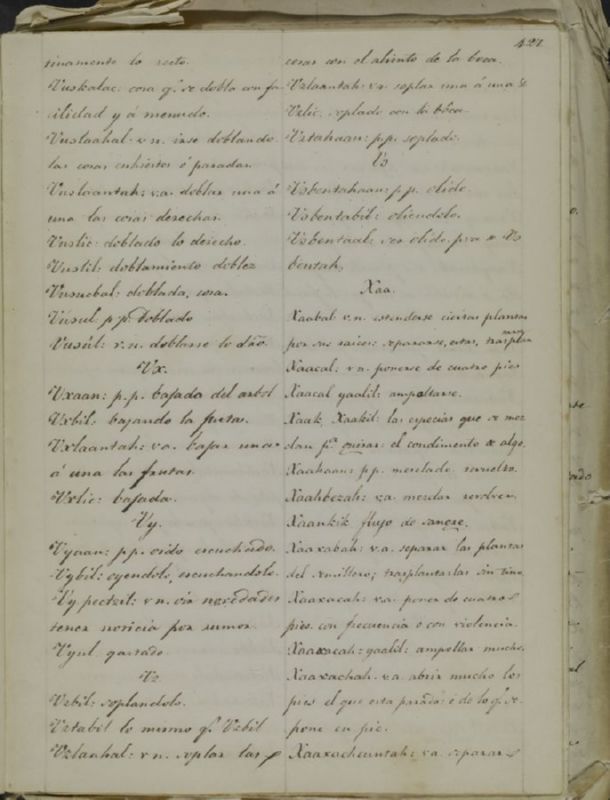 427
tinamente lo recto.
Vuskalac: cosa q.e se dobla con fa
cilidad y á menudo.
Vuslaahal: v.n. irse doblando
las cosas enhiestas ó paradas.
Vuslaantah: v.a. doblar una á
una las cosas derechas.
Vuslic: doblado lo derecho.
Vustil: doblamiento doblez
Vusucbal: doblada, cosa.
Vúsul p.p. doblado
Vusúl: v.n. doblarse lo dho.
Vx.
Vxaan: p.p. bajada del arbol
Vxbil: bajando la frutas.
Vxlaantah: v.a. bajar una
á una las frutas.
Vxlic: bajada.
Vy.
Vyaan: p.p. oido escuchado.
Vybil: oyendolo, escuchandolo.
Vy pectzil: v.n. oir necedades
tener noticia por rumor.
Vyul gastado.
Vz
Vzbil: soplandolo.
Vztabil lo mismo q.e Vzbil
Vzlanhal: v.n. soplar las
cosas con el aliento de la boca.
Vzlaantah: v.a. soplar una á una
Vzlic: soplado con la boca
Vztahaan: p.p. soplado.
Vs
Vsbentahaan: p.p. olido.
Vsbentabil: oliendolo.
Vsbentaal: ser olido, psa. de Vs
bentah.
Xaa.
Xaabal v.n. estenderse ciertas plantas
por sus raices: separarse, estas, trasplan
Xaacal: v.n. ponerse de cuatro pies
Xaacal yaalil: ampollarse.
Xaak, Xaakil: las especias que se mez
clan p.a guisar: el condimento de algo.
Xaahaan: p.p. mezclado revuelto.
Xaahbezah: v.a. mezclar revolver.
Xaankik flujo de sangre.
Xaaxabah: v.a. separar las plantas
del semillero; trasplantarlas sin tino.
Xaaxacah: v.a. poner de cuatro
pies con frecuencia o con violencia.
Xaaxacah: yaalil: ampollar mucho.
Xaaxachah. v.a. abrir mucho los
pies el que esta parado: ó de lo q.e se
pone en pie.
Xaaxacheuntah: v.a. separar